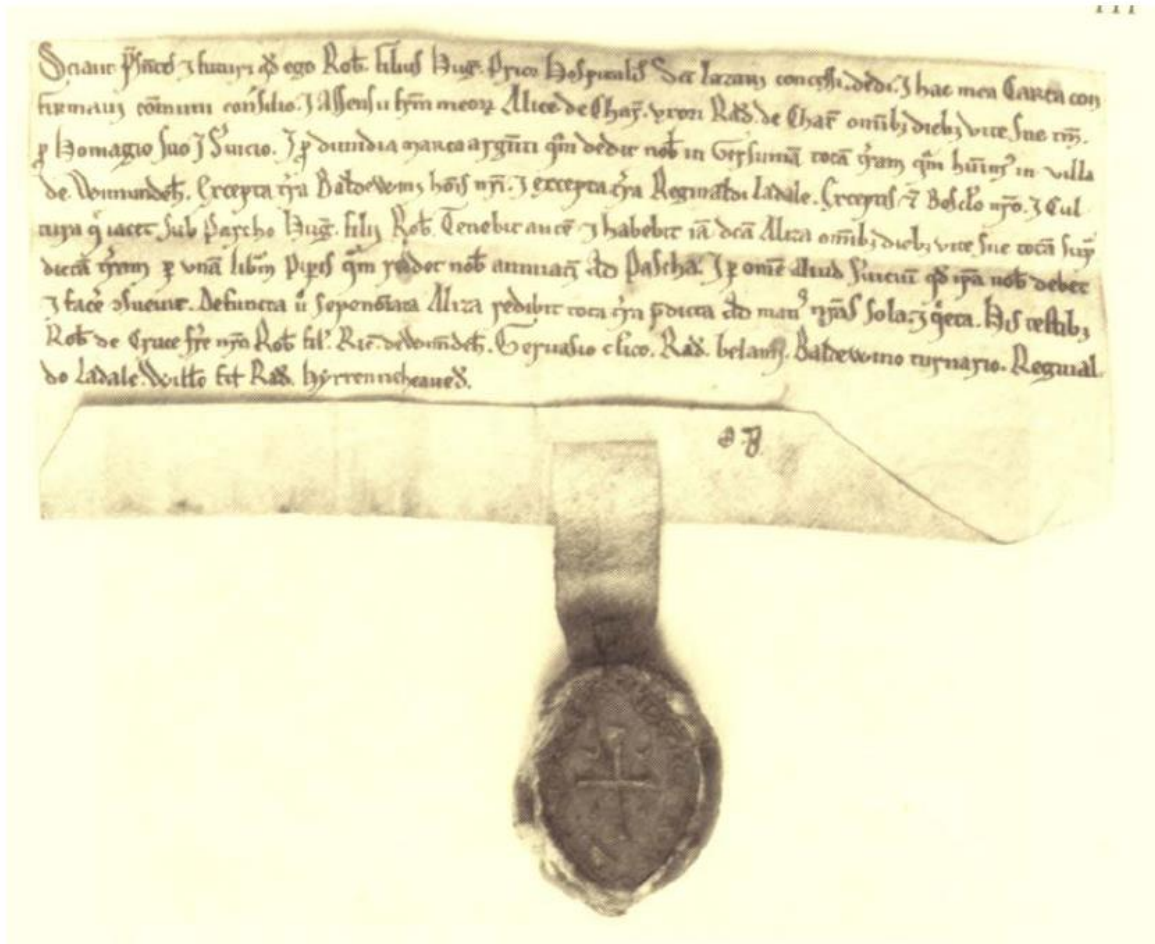 Sciant p̄sentes ⁊ futuri qđ ego Roƀ. filius Hug̃. Prior Hospitalis Sc̄i Lazari concessi. dedi. ⁊ hac mea Carta con
firmavi cōmuni consilio. ⁊ Assensu fr̄m meoꝝ Alice de Char̃. uxori Rađ. de Char̃ omĩbꝫ diebꝫ vite sue
ꝑ Homagio suo ⁊ S'uicio. ⁊ ꝑ dimidia marca argēti qm̄ dedit noƀ in Gersumā totā t'ram qm̄ in villa
de. Wimundeƀ. Excepta t'ra Baldewini hōis nr̄i. ⁊ excepta t'ra Reginaldi Ladale. Exceptis ⁊ Boscħo nr̄o. ⁊ Cul
tura q̄ iacet sub Parcho Hug̃. filij Roƀ. Tenebit autē ⁊ habebit iā dc̄ā Aliza omĩbꝫ diebꝫ vite sue totā sup̄
dictā t'ram ꝑ unā libr̄m Pip̄is qm̄ reddet noƀ annuatī Ad Pascha. ⁊ ꝑ omē Aliud S'uiciū qđ ip̄a noƀ debet
⁊ facere . Defuncta ů Aliza redibit tota t'ra p̄dicta Ad manꝰ nr̄as sola. ⁊ q̄eta. His testibꝫ
Roƀ de Cruce fr̄e nr̄o Roƀ fil'. Ric̄. de Wim̄deƀ. Gervasio cl'ico. Rađ. belam̄. Baldewino turnario. Reginal
do Ladale. Willo fil' Rađ.